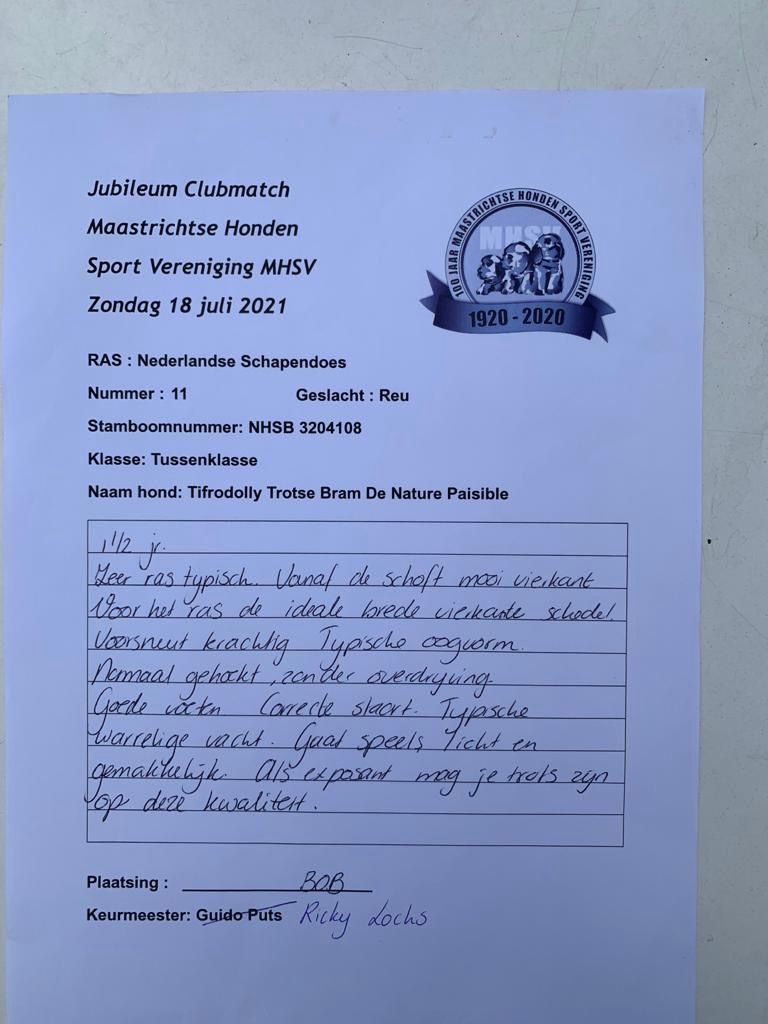 Jubileum Clubmatch
Maastrichtse Honden
Sport Vereniging MHSV
Zondag 18 juli 2021
100 JAAR MAASTRICHTSE HONDEN SPORT VERENIGING
MHSV
1920 - 2020
RAS : Nederlandse Schapendoes
Nummer : 11 Geslacht : Reu
Stamboomnummer: NHSB 3204108
Klasse: Tussenklasse
Naam hond: Tifrodolly Trotse Bram De Nature Paisible
1 1/2 jr.
Zeer ras typisch. Vanaf de schoft mooi vierkant
Voor het ras de ideale brede vierkante schedel.
Voorsnuit krachtig Typische oogvorm.
Normaal gehoekt, zonder overdrijving.
Goede voeten. Correcte staart. Typische
warrelige vacht. Gaat speels, licht en
gemakkelijk. Als exposant mag je trots zijn
op deze kwaliteit.
Plaatsing : BOB
Keurmeester: Guido Puts Ricky Lochs